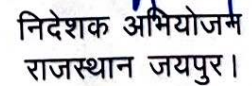 निदेशक अभियोजन
राजस्थान जयपुर।